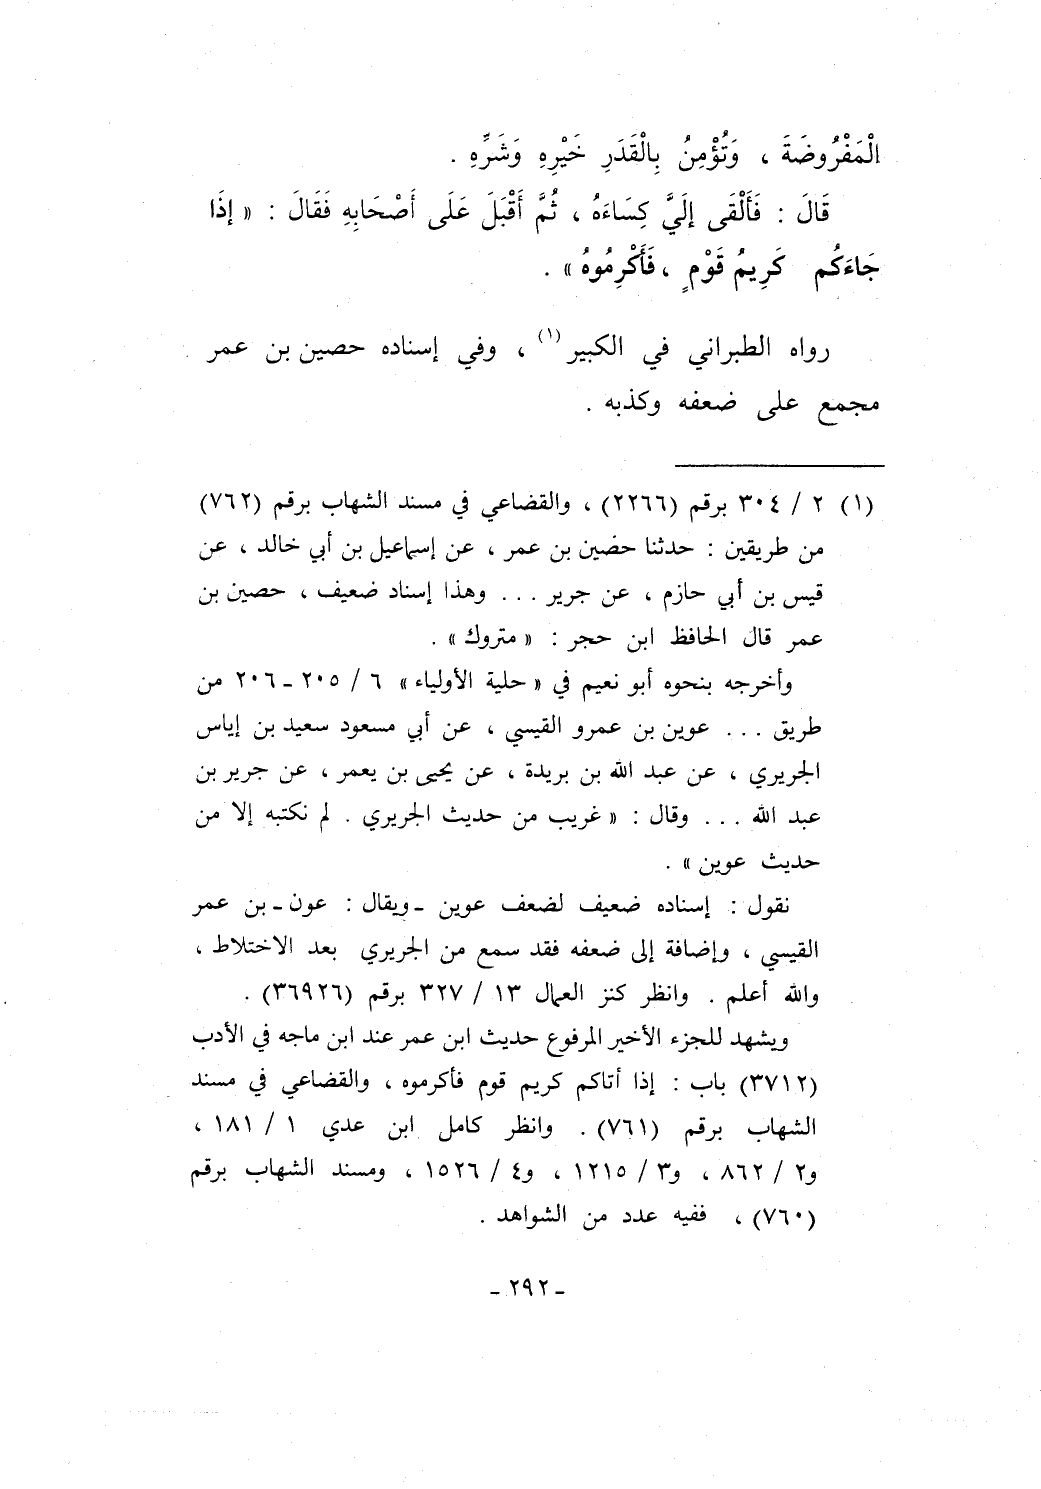 الْمَفْرُوضَةَ ، وَتُؤْمِنُ بِالْقَدَرِ خَيْرِهِ وَشَرِّهِ .
قَالَ : فَأَلْقَى إِلَيَّ كِسَاءَهُ ، ثُمَّ أَقْبَلَ عَلَى أَصْحَابِهِ فَقَالَ : « إِذَا
جَاءَكُم كَرِيمُ قَوْمٍ ، فَأَكْرِمُوهُ » .
رواه الطبراني في الكبير (١) ، وفي إسناده حصين بن عمر
مجمع على ضعفه وكذبه .
(١) ٢ / ٣٠٤ برقم (٢٢٦٦) ، والقضاعي في مسند الشهاب برقم (٧٦٢)
من طريقين : حدثنا حضين بن عمر ، عن إسماعيل بن أبي خالد ، عن
قيس بن أبي حازم ، عن جرير ... وهذا إسناد ضعيف ، حصين بن
عمر قال الحافظ ابن حجر : « متروك » .
وأخرجه بنحوه أبو نعيم في « حلية الأولياء » ٦ / ٢٠٥ ـ ٢٠٦ من
طريق ... عوين بن عمرو القيسي ، عن أبي مسعود سعيد بن إياس
الجريري ، عن عبد الله بن بريدة ، عن يحيى بن يعمر ، عن جرير بن
عبد الله ... وقال : « غريب من حديث الجريري . لم نكتبه إلا من
حديث عوين » .
نقول : إسناده ضعيف لضعف عوين ـ ويقال : عون ـ بن عمر
القيسي ، وإضافة إلى ضعفه فقد سمع من الجريري بعد الاختلاط ،
والله أعلم . وانظر كنز العمال ١٣ / ٣٢٧ برقم (٣٦٩٢٦) .
ويشهد للجزء الأخير المرفوع حديث ابن عمر عند ابن ماجه في الأدب
(٣٧١٢) باب : إذا أتاكم كريم قوم فأكرموه ، والقضاعي في مسند
الشهاب برقم (٧٦١) . وانظر كامل ابن عدي ١ / ١٨١ ،
و٢ / ٨٦٢ ، و٣ / ١٢١٥ ، و٤ / ١٥٢٦ ، ومسند الشهاب برقم
(٧٦٠) ، ففيه عدد من الشواهد .
ـ ٢٩٢ ـ